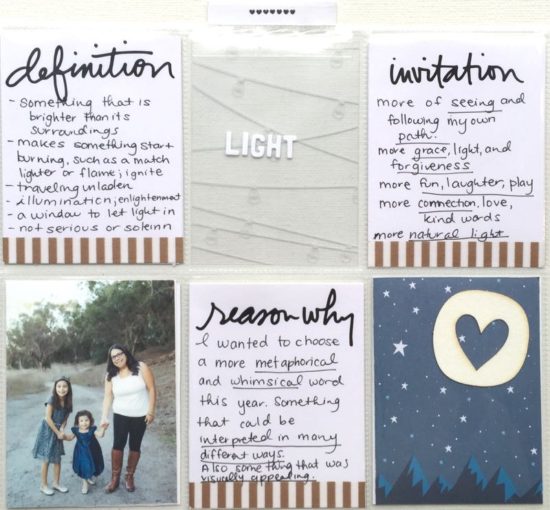 definition
- Something that is
brighter than its
surroundings
- makes something start
burning, such as a match
lighter or flame; ignite
- traveling unladen
- illumination; enlightenment
- a window to let light in
- not serious or solemn
LIGHT
invitation
more of seeing and
following my own
path.
more grace, light, and
forgiveness
more fun, laughter, play
more connection, love,
kind words
more natural light
reason why
I wanted to choose
a more metaphorical
and whimsical word
this year. Something
that could be
interpreted in many
different ways.
Also something that was
visually appealing.